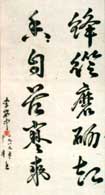 鋒從磨砺出
香自苦寒來